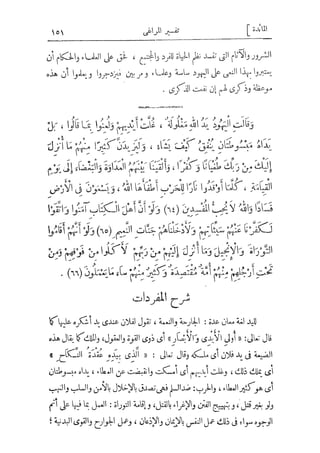 [المائدة] تفسير المراغى ١٥١
الشرور والآثام التى تفسد نظم الحياة للفرد والمجتمع ، فحق على العلماء والحكام أن
يعتبروا بهذا النعى على اليهود ساسة وعلماء ومربين فيزدجروا ويعلموا أن هذه
موعظة وذكرى لهم إن نفعت الذكرى .
وَقَالَتِ الْيَهُودُ يَدُ اللهِ مَغْلُولَةٌ ، غُلَّتْ أَيْدِيهِمْ وَلُعِنُوا بِمَا قَالُوا ، بَلْ
يَدَاهُ مَبْسُوطَتَانِ يُنْفِقُ كَيْفَ يَشَاءُ ، وَلَيَزِيدَنَّ كَثِيرًا مِنْهُمْ مَا أُنْزِلَ
إِلَيْكَ مِنْ رَبِّكَ طُغْيَانًا وَكُفْرًا ، وَأَلْقَيْنَا بَيْنَهُمُ الْعَدَاوَةَ وَالْبَغْضَاءَ إِلَى يَوْمِ
الْقِيَامَةِ ، كُلَّمَا أَوْقَدُوا نَارًا لِلْحَرْبِ أَطْفَأَهَا اللهُ ، وَيَسْعَوْنَ فِي الْأَرْضِ
فَسَادًا وَاللهُ لَا يُحِبُّ الْمُفْسِدِينَ (٦٤) وَلَوْ أَنَّ أَهْلَ الْكِتَابِ آمَنُوا وَاتَّقَوْا
لَكَفَّرْنَا عَنْهُمْ سَيِّئَاتِهِمْ وَلَأَدْخَلْنَاهُمْ جَنَّاتِ النَّعِيمِ (٦٥) وَلَوْ أَنَّهُمْ أَقَامُوا
التَّوْرَاةَ وَالْإِنْجِيلَ وَمَا أُنْزِلَ إِلَيْهِمْ مِنْ رَبِّهِمْ لَأَكَلُوا مِنْ فَوْقِهِمْ وَمِنْ
تَحْتِ أَرْجُلِهِمْ مِنْهُمْ أُمَّةٌ مُقْتَصِدَةٌ وَكَثِيرٌ مِنْهُمْ سَاءَ مَا يَعْمَلُونَ (٦٦) .
شرح المفردات
لليد لغة معان عدة : الجارحة والنعمة ، تقول لفلان عندى يد أشكره عليها كما
قال تعالى : « أُولِي الْأَيْدِي وَالْأَبْصَارِ » أى ذوى القوة والعقول، والملك كما يقال هذه
الضيعة فى يد فلان أى ملكه وقال تعالى : « الَّذِي بِيَدِهِ عُقْدَةُ النِّكَاحِ »
أى يملك ذلك ، وغلت أيديهم أى أمسكت وانقبضت عن العطاء ، يداه مبسوطتان
أى هو كثير العطاء ، والحرب : ضد السلم فهى تصدق بالإخلال بالأمن والسلب والنهب
ولو بغير قتل ، وبتهييج الفتن والإغراء بالقتل، وإقامة التوراة : العمل بما فيها على أتم
الوجوه سواء فى ذلك عمل النفس بالإيمان والإذعان ، وعمل الجوارح والقوى البدنية ؛